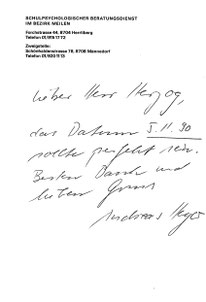 SCHULPSYCHOLOGISCHER BERATUNGSDIENST
IM BEZIRK MEILEN
Forchstrasse 44, 8704 Herrliberg
Telefon 01/915 17 72
Zweigstelle:
Schönhaldenstrasse 78, 8708 Männedorf
Telefon 01/920 11 13
Lieber Herr Herzog,
das Datum 5.11.90
sollte perfekt sein.
Besten Dank und
lieben Gruss
Andreas